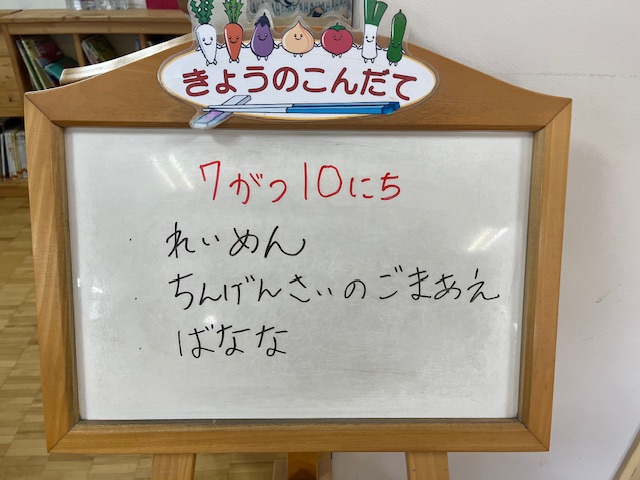 きょうのこんだて
7がつ10にち
れいめん
ちんげんさいのごまあえ
ばなな